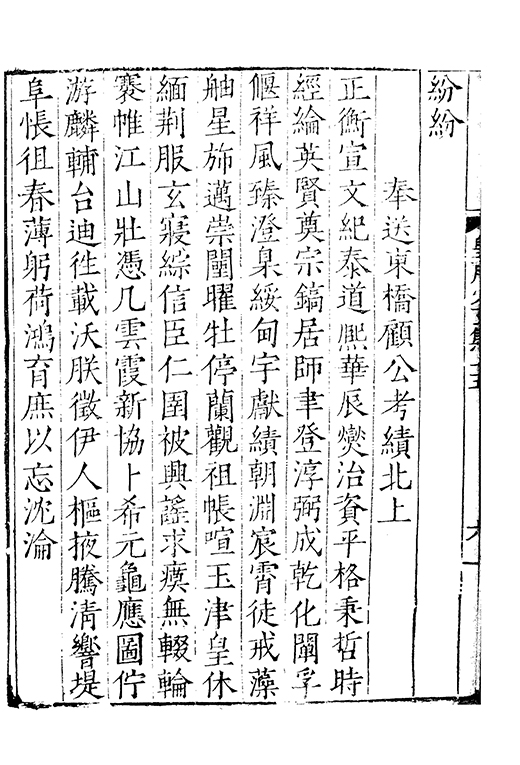 紛紛
奉送東橋顧公考績北上
正衡宣文紀泰道熈華辰爕治資平格秉哲時
經綸英賢奠宗鎬居師聿登淳弼成乾化闡孚
偃祥風臻澄臬綏甸宇獻績朝淵宸霄徒戒藻
舳星斾邁崇闉曜牡停蘭觀祖帳喧玉津皇休
緬荆服玄寢綜信臣仁圄被興謡求瘼無輟輪
褰帷江山壯憑几雲霞新協卜希元龜應圖佇
游麟輔台迪徃載沃朕徵伊人樞掖騰清響堤
阜悵徂春薄躬荷鴻育庶以忘沈淪